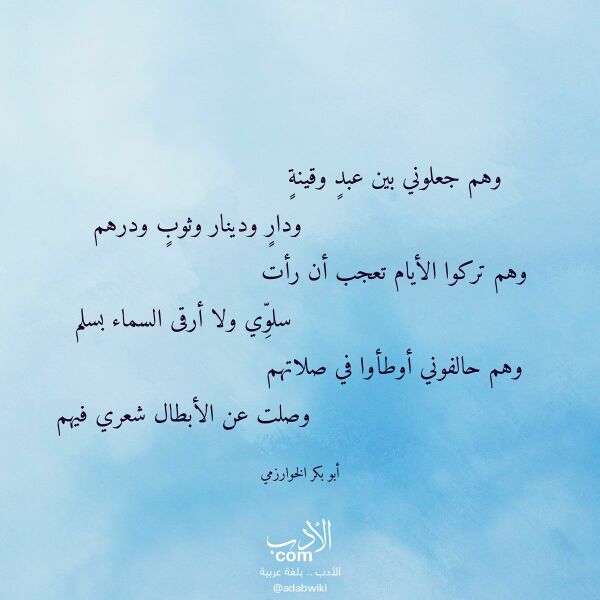 وهم جعلوني بين عبدٍ وقينةٍ
ودارٍ ودينار وثوبٍ ودرهم
وهم تركوا الأيام تعجب أن رأت
سلوّي ولا أرقى السماء بسلم
وهم حالفوني أوطأوا في صلاتهم
وصلت عن الأبطال شعري فيهم
أبو بكر الخوارزمي
الأدب
com
الأدب .. بلغة عربية
@adabwiki